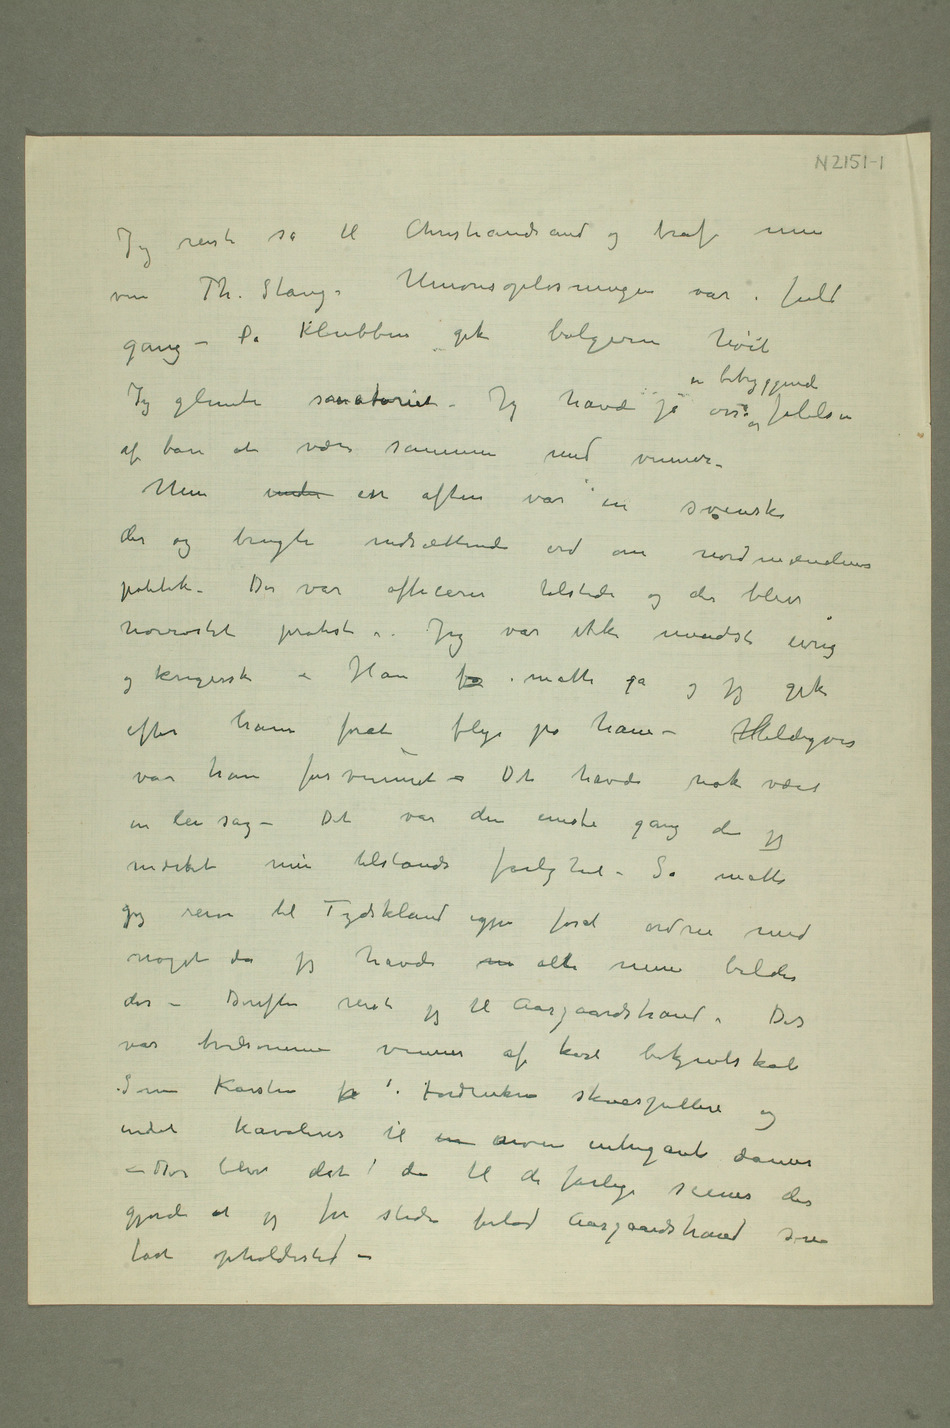 N 2151-1
Jeg reiste så til Christiandsand og traf min
ven Th. Stang. Unionsopløsningen var i fuld
gang – På Klubben gik bølgerne høit
Jeg glemte sanatoriet – Jeg havde jo også en betryggende følelse
af bare at være sammen med venner –
Men en aften var en svenske
der og brugte nedsættende ord om nordmændenes
politik – Der var officerer tilstede og der blev
høirøstet protest. Jeg var ikke mindst ivrig
og krigersk – Han måtte gå og jeg gik
efter ham forat flyge på ham – Heldigvis
var han forsvunnet – Det havde nok vært
en lei sag – Det var den eneste gang da jeg
mærket min tilstands farlighed – Så måtte
jeg reise til Tydskland igjen forat ordne med
noget da jeg havde alle mine billeder
der – Derefter reiste jeg til Aasgaardstrand. Der
var tvilsomme venner af kort bekjentskab
Som Karsten fordrukne skuespillere og
endel kavalerer til intrigante damer
– Der blev det da til de farlige scener der
gjorde at jeg for stedse forlod Aasgaardstrand som
fast opholdssted –